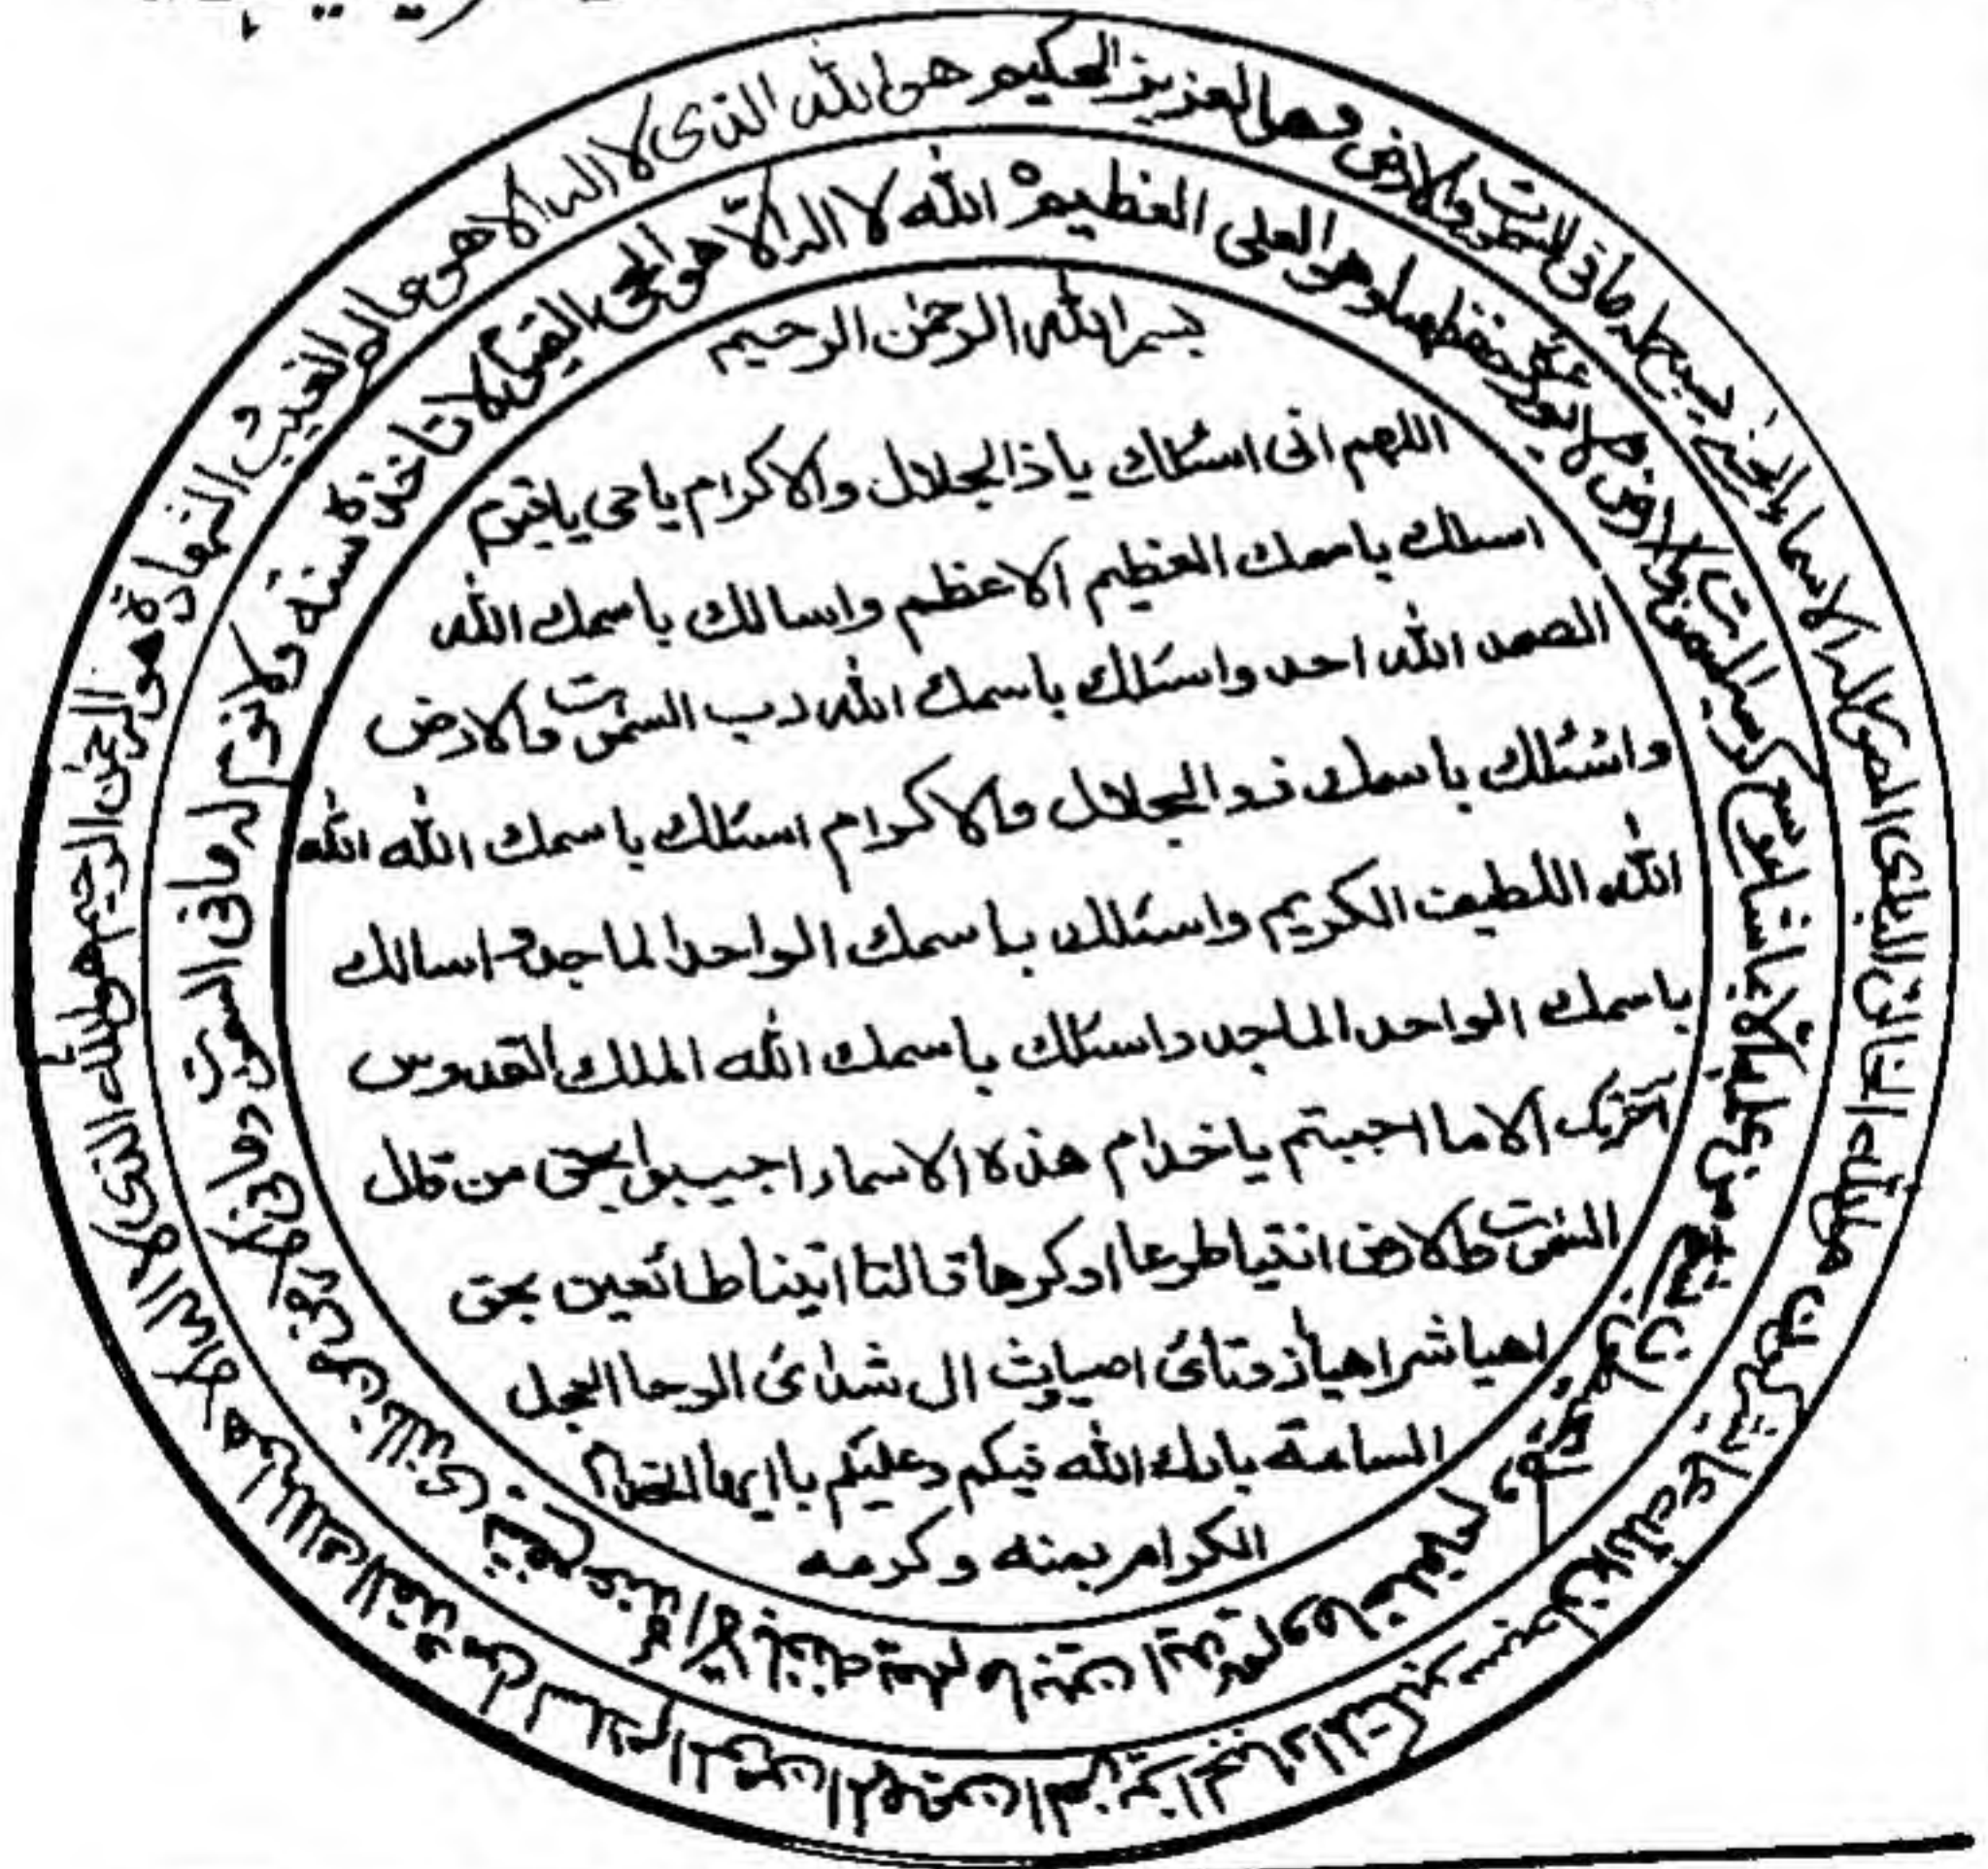 هو الله الذى لا اله الا هو عالم الغيب و الشهادة هو الرحمن الرحيم هو الله الذى لا اله الا هو الملك القدوس السلام المؤمن المهيمن العزيز الجبار المتكبر سبحان الله عما يشركون هو الله الخالق البارى المصور له الاسماء الحسنى يسبح له مافى السموات والارض وهو العزيز الحكيم
الله لا اله الّا هو الحى القيوم لا تاخذه سنة ولا نوم له مافى السموت ومافى الارض من ذالذى يشفع عنده الا باذنه يعلم ما بين ايديهم وما خلفهم ولا يحيطون بشئ من علمه الّا بماشاء وسع كرسيه السموت والارض ولا يؤده حفظهما وهو العلى العظيم
بسم الله الرحمن الرحيم
اللهم انى اسئلك ياذالجلال والاكرام ياحى ياقيوم
اسالك باسمك العظيم الاعظم واسالك باسمك الله
الصمد الله احد واسئلك باسمك الله رب السموت والارض
واسئلك باسمك ذوالجلال والاكرام اسئلك باسمك الله الله
الله اللطيف الكريم واسئلك باسمك الواحد الماجد و اسالك
باسمك الواحد الماجد واسئلك باسمك الله الملك القدوس
الا ما اجبتم ياخدام هذه الاسماء اجيبوا بحق من قال
السموت والارض ائتيا طوعا اوكرها قالتا اتينا طائعين بحق
اهيا شراهيا اصباوث ال شدائ الوحا العجل
الساعة بارك الله فيكم وعليكم يا ايها
الكرام بمنه وكرمه